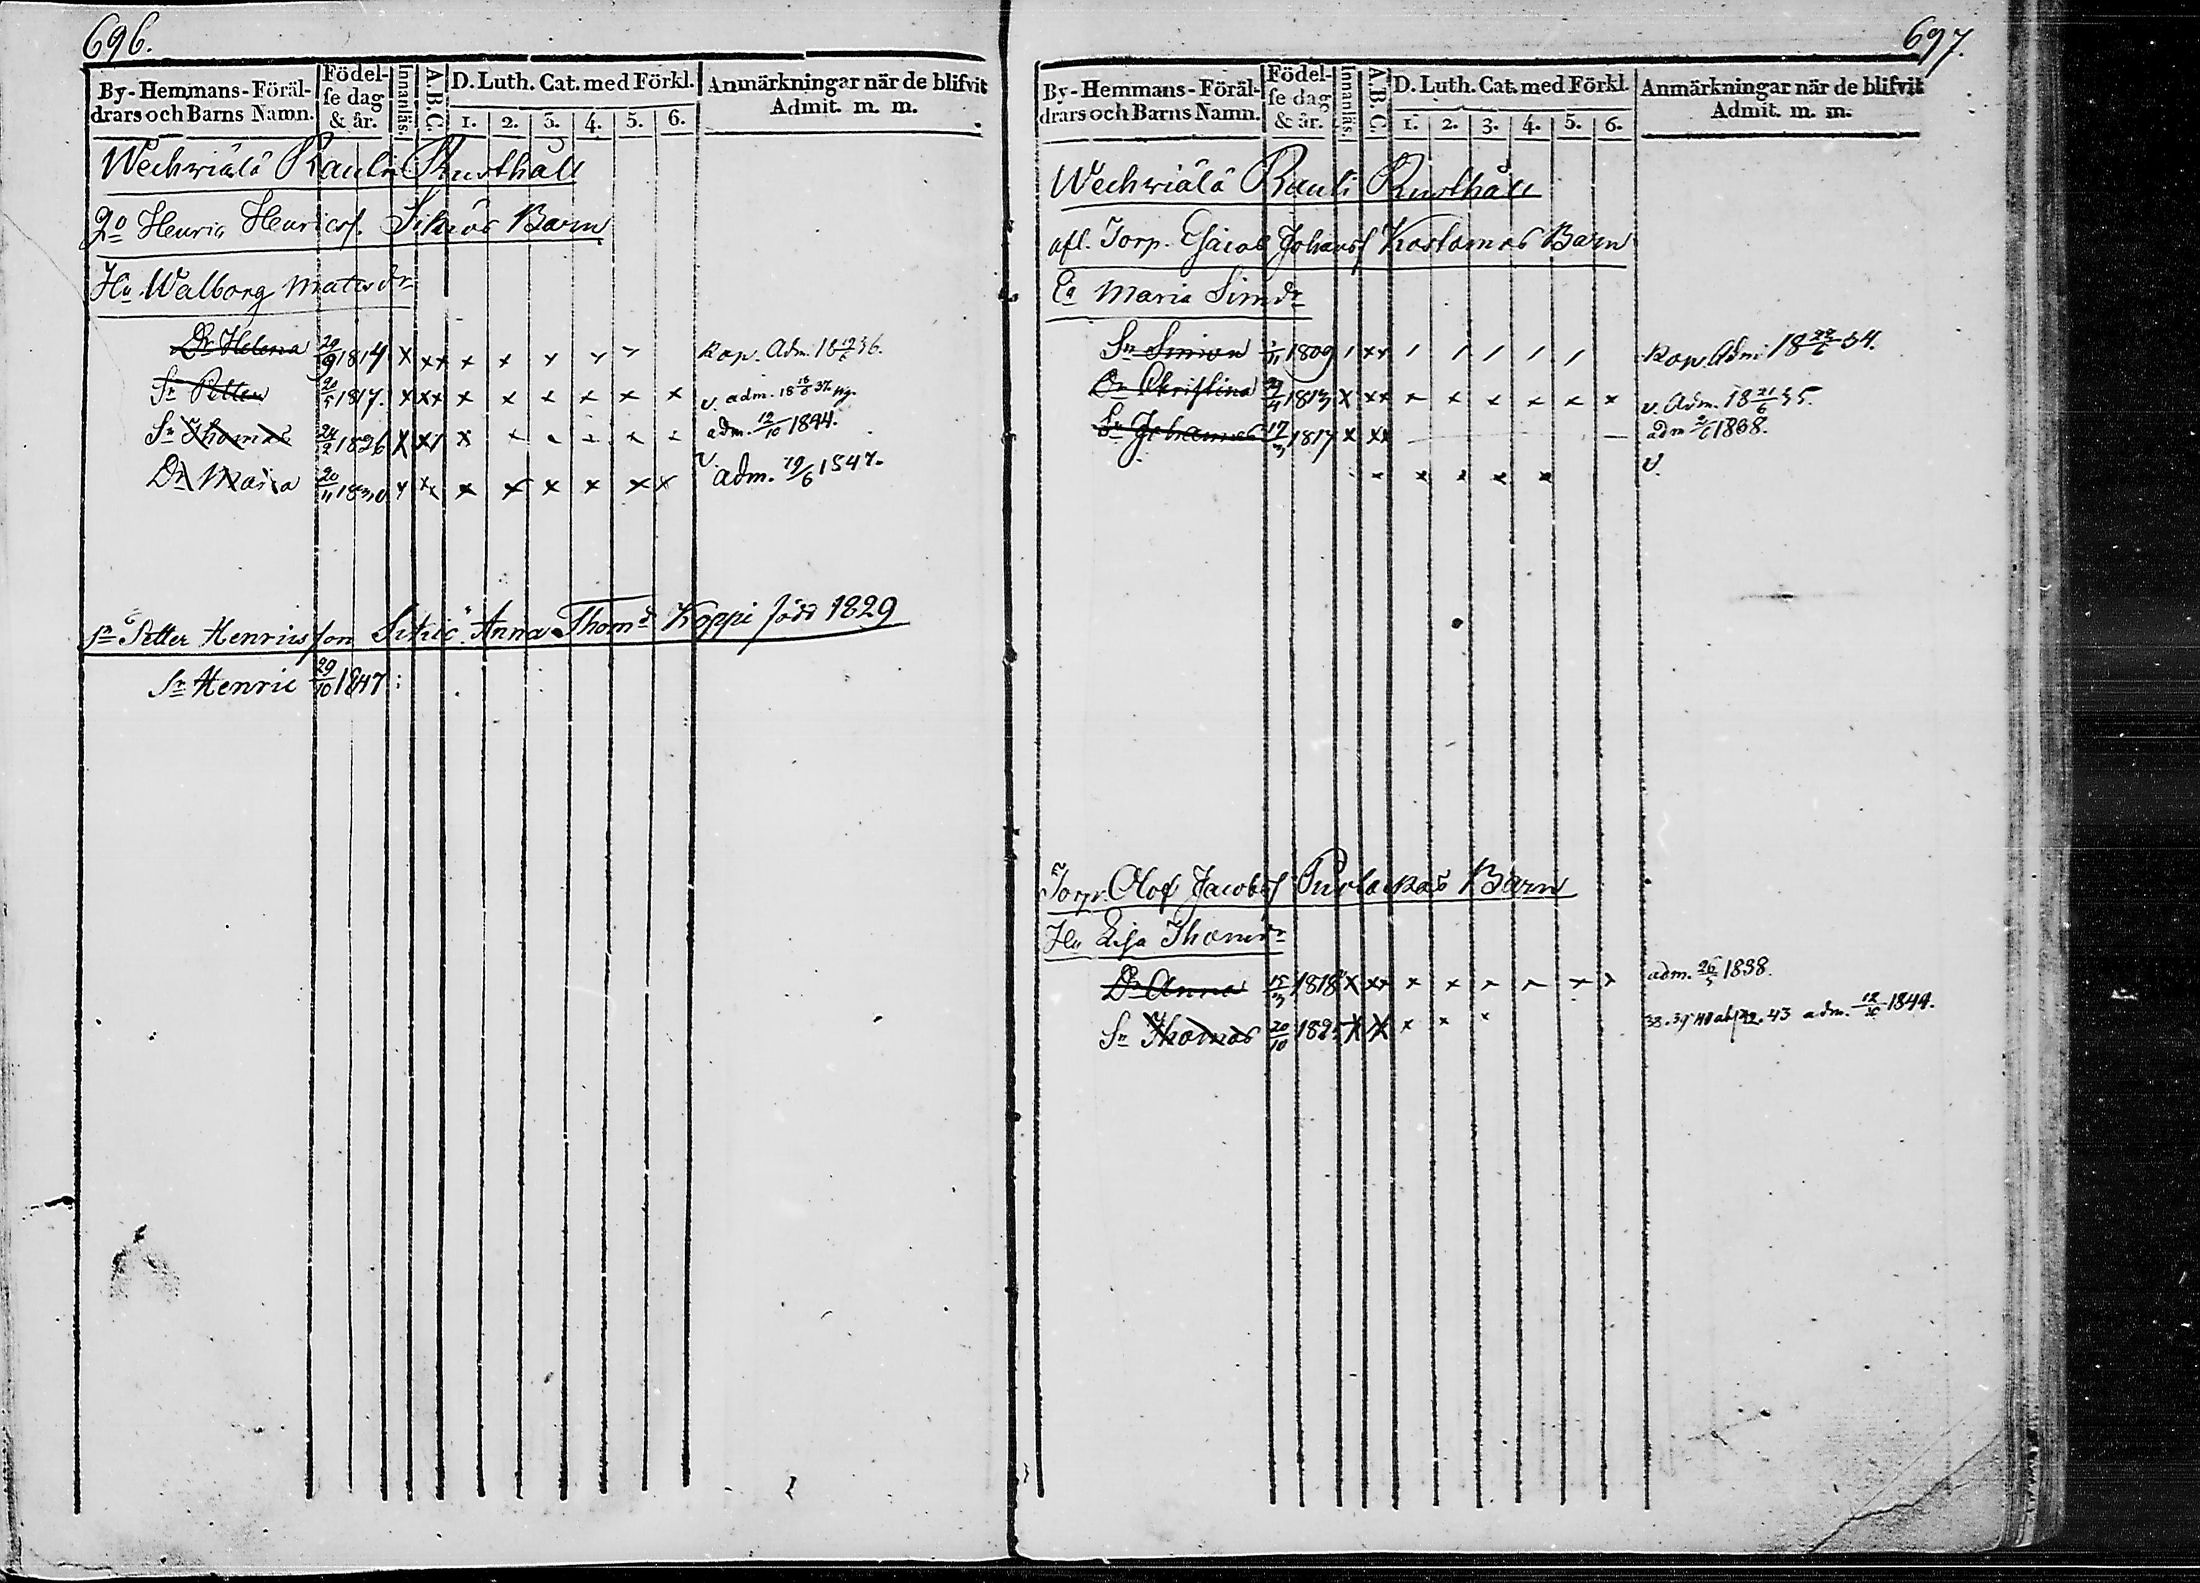 696.
By-Hemmans-Föräl-
drars och Barns Namn.
Födel-
se dag
& år.
Innanläs.
A.B.C.
D. Luth. Cat. med Förkl.
1. 2. 3. 4. 5. 6.
Anmärkningar när de blifvit
Admit. m. m.
Wechwiälä Rauli Rusthåll
2o Henric Henricss. Barn
Hu Walborg Matsdr
Dr Helena 29/9 1814 x xx x x x x x Kop. Adm. 18 36.
Sn Petter 20/5 1817. x xx x x x x x x v. adm. 18 37.
Sn Thomas 24/2 1826 x x x x x x x x adm. 12/10 1844.
Dr Maria 20/11 1830 x xx x x x x x x v. adm. 19/6 1847.
sn Petter Henricsson Anna Thomd Koppi född 1829
Sn Henric 29/10 1847
697.
By-Hemmans-Föräl-
drars och Barns Namn.
Födel-
se dag
& år.
Innanläs.
A.B.C.
D. Luth. Cat. med Förkl.
1. 2. 3. 4. 5. 6.
Anmärkningar när de blifvit
Admit. m. m.
Wechwiälä Rauli Rusthåll
afl. Torp. Johanss Kostamas Barn
Ea Maria Simdr
Sn Simon 1809 / xx / / / / / Kop. Adm. 18 34.
Dr Christina 1813 x xx x x x x x x v. Adm. 18 21/6 35.
Sn Johannes 17/3 1817 x xx adm 1838.
x x x x x v.
Torp. Olof Jacobss Barn
Hu Lisa Thomdr
Dr Anna 15/3 1818 x xx x x x x x x adm. 26/5 1838.
Sn Thomas 20/10 1825 x x x x x 43 adm. 12/10 1844.